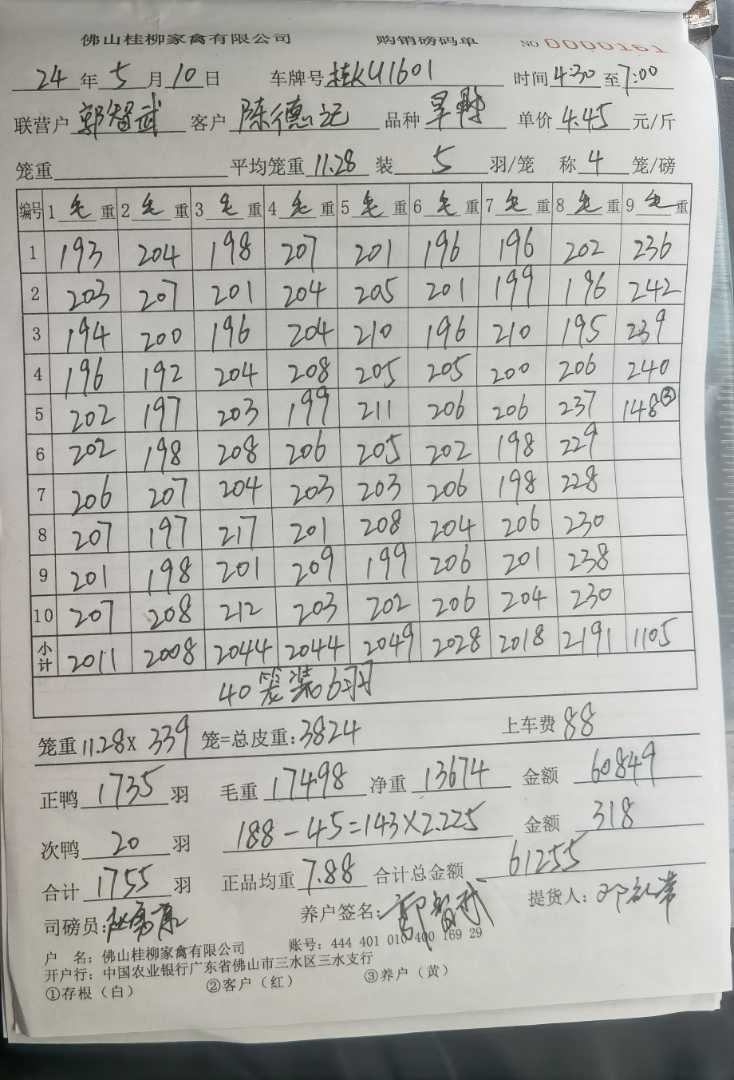 佛山桂柳家禽有限公司 购销磅码单 NO 0000161
24 年 5 月 10 日 车牌号 桂KU1601 时间 4:30 至 7:00
联营户 郭智武 客户 陈德记 品种 单价 4.45 元/斤
笼重 平均笼重 11.28 装 5 羽/笼 称 4 笼/磅
编号 1 毛 重 2 毛 重 3 毛 重 4 毛 重 5 毛 重 6 毛 重 7 毛 重 8 毛 重 9 毛 重
1 193 204 198 207 201 196 196 202 236
2 203 207 201 204 205 201 199 196 242
3 194 200 196 204 210 196 210 195 239
4 196 192 204 208 205 205 200 206 240
5 202 197 203 199 211 206 206 237 148③
6 202 198 208 206 205 202 198 229
7 206 207 204 203 203 206 198 228
8 207 197 217 201 208 204 206 230
9 201 198 201 209 199 206 201 238
10 207 208 212 203 202 206 204 230
小计 2011 2008 2044 2044 2049 2028 2018 2191 1105
40笼装6羽
笼重 11.28 x 339 笼=总皮重: 3824 上车费 88
正鸭 1735 羽 毛重 17498 净重 13674 金额 60849
次鸭 20 羽 188-45=143×2.225 金额 318
合计 1755 羽 正品均重 7.88 合计总金额 61255
司磅员: 养户签名: 郭智武 提货人:
户 名: 佛山桂柳家禽有限公司 账号: 444 401 010 400 169 29
开户行: 中国农业银行广东省佛山市三水区三水支行
①存根(白) ②客户(红) ③养户(黄)